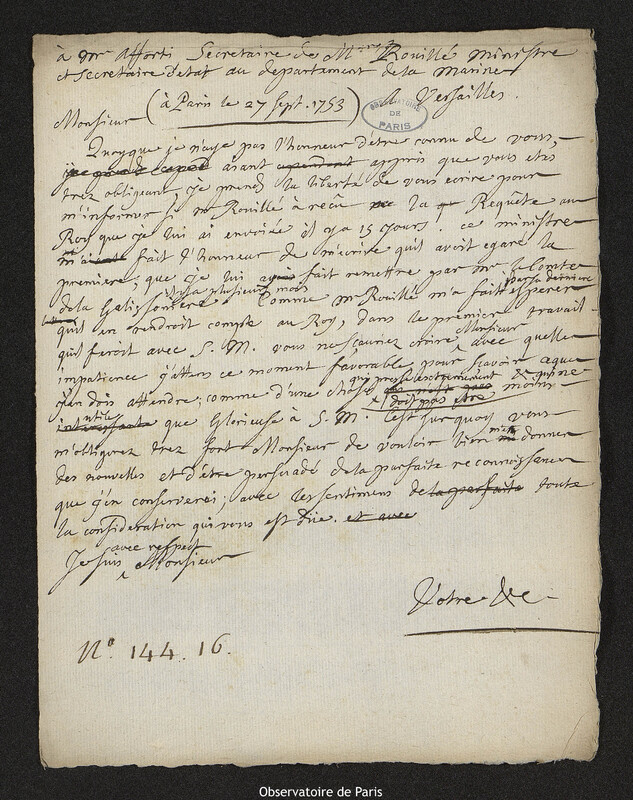 à Mr Afforti Secretaire de Mr Rouillé Ministre
et Secretaire d'Etat au departament de la Marine
(à Paris le 27 Sept. 1753) A Versailles.
OBSERVATOIRE DE PARIS
Monsieur
Quoyque je n'aye pas l'honneur d'être connu de vous,
aiant appris que vous êtes
trez obligeant, je prends la liberté de vous ecrire pour
m'informer si Mr Rouillé a reçu la Requête au
Roy que je lui ai envoiée il y a 15 jours. ce ministre
m'a fait l'honneur de m'écrire qu'il avoit egaré la
premiere, que je lui avois fait remettre par Mr le Comte
de la Galissoniere il y a plusieurs mois Comme Mr Rouillé m'a fait esperer par sa derniere
qu'il en rendroit compte au Roy, dans le premier travail
qu'il feroit avec S. M. vous ne sçauriez croire Monsieur avec quelle
impatience j'attens ce moment favorable pour sçavoir a que
j'en dois attendre; comme d'une chose qui & qui ne
doit pas être moins
utile que Glorieuse à S. M. C'est sur quoy vous
m'obligerez trez fort Monsieur de vouloir bien me donner
des nouvelles et d'être persuadé de la parfaite reconnoissance
que j'en conserverai; avec les sentimens de la parfaite toute
la consideration qui vous est düe. et avec
Je suis avec respect Monsieur
Votre &c
No. 144. 16.
Observatoire de Paris